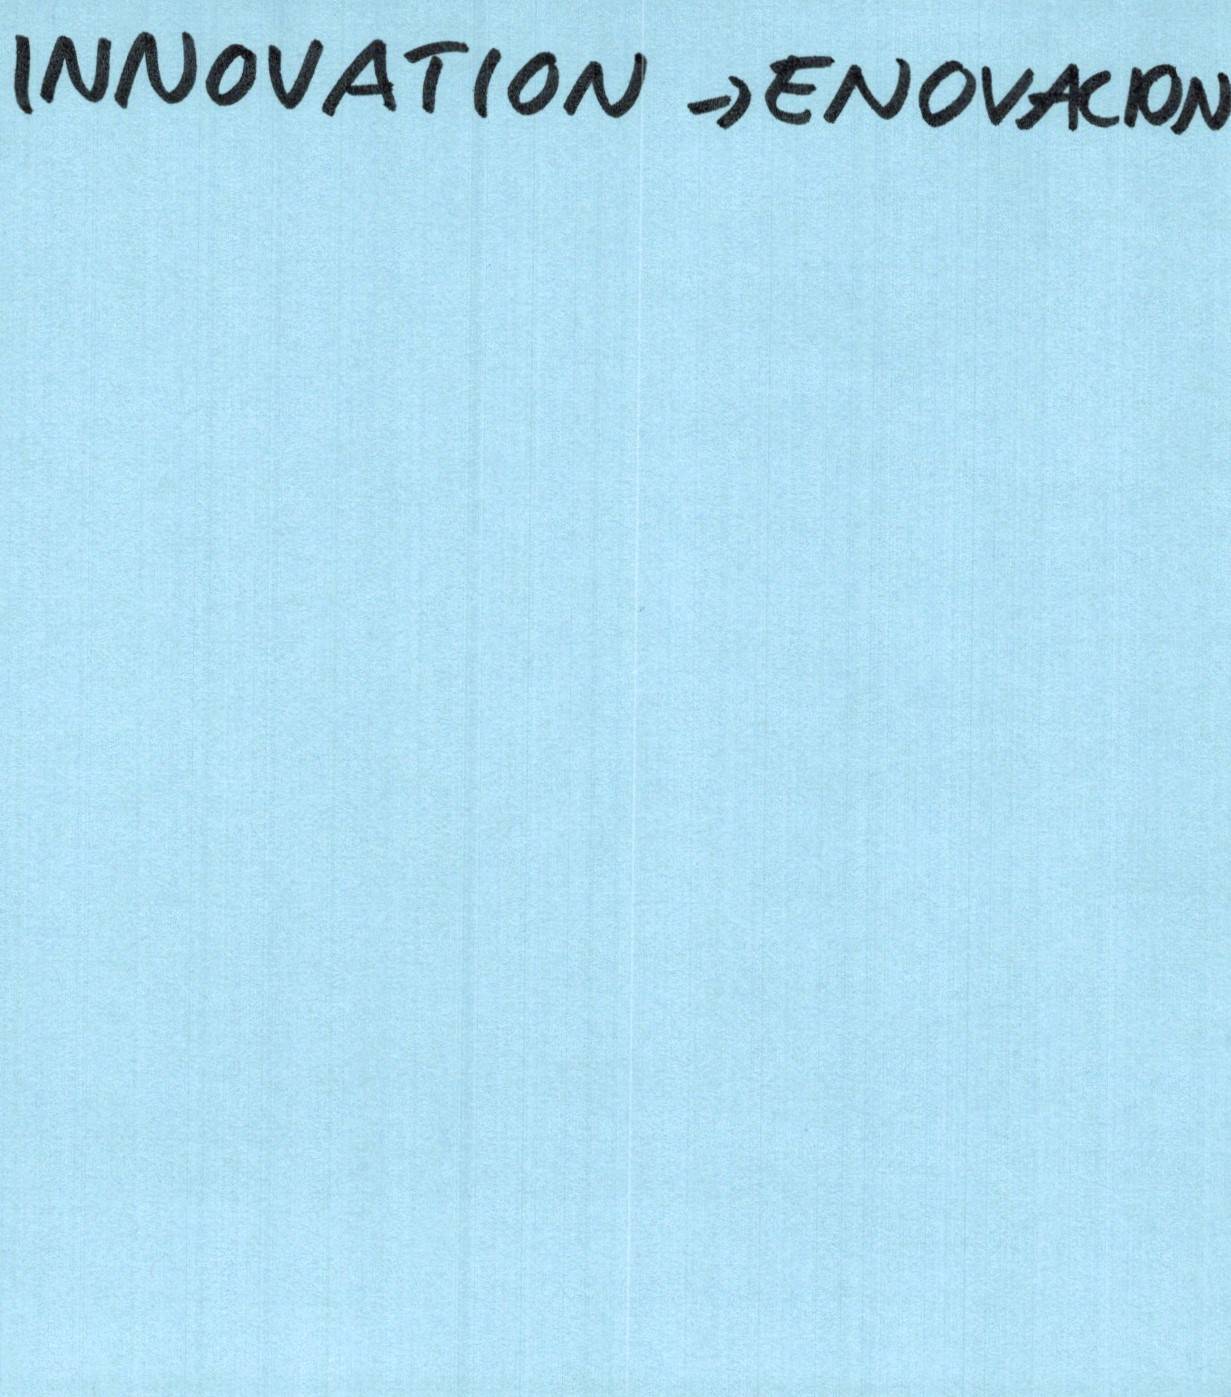 INNOVATION → ENOVACION